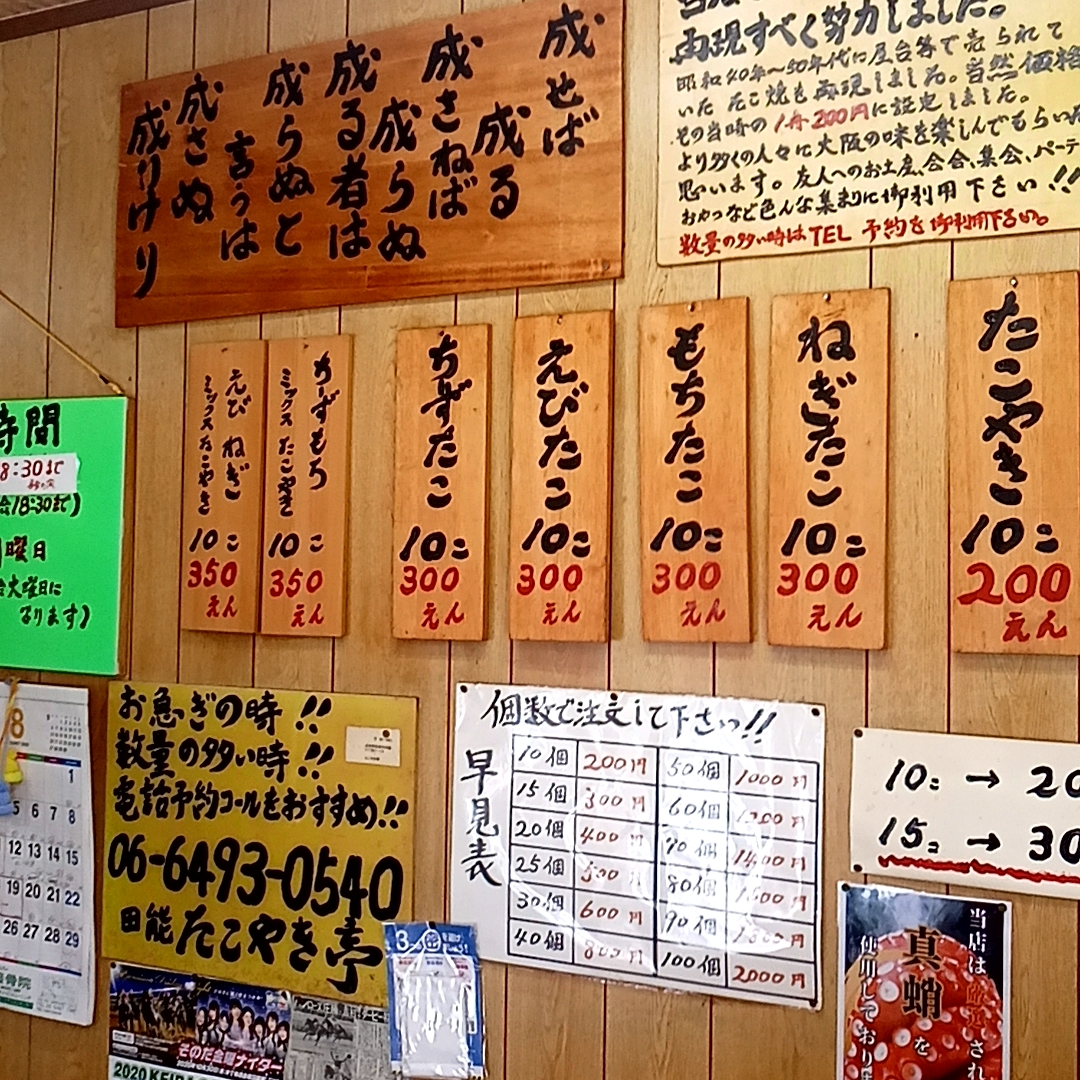 成せば
成る
成さねば
成らぬ
成る者は
成らぬと
言うは
成さぬ
成りけり
再現すべく努力しました。
昭和40年〜50年代に屋台等で売られて
いた たこ焼を再現しました。当然価格
その当時の1舟200円に設定しました。
より多くの人々に大阪の味を楽しんでもらいた
思います。友人へのお土産、会合、集会、パーテ
おやつなど色んな集まりに御利用下さい!!
数量の多い時はTEL 予約を御利用下さい。
たこやき
10こ
200
えん
ねぎたこ
10こ
300
えん
もちたこ
10こ
300
えん
えびたこ
10こ
300
えん
ちーずたこ
10こ
300
えん
ちーずもち
ミックス たこやき
10こ
350
えん
えび ねぎ
ミックス たこやき
10こ
350
えん
時間
8:30まで
18:30まで)
曜日
火曜日に
なります)
8
1
5 6 7 8
12 13 14 15
19 20 21 22
26 27 28 29
お急ぎの時!!
数量の多い時!!
電話予約コールをおすすめ!!
06-6493-0540
田能 たこやき亭
個数で注文して下さい!!
早見表
10個 200円 50個 1000円
15個 300円 60個 1200円
20個 400円 70個 1400円
25個 500円 80個 1600円
30個 600円 90個 1800円
40個 800円 100個 2000円
10こ → 20
15こ → 30
当店は厳選され
真蛸を
使用しており
そのだ金曜ナイター
2020 KEIBA